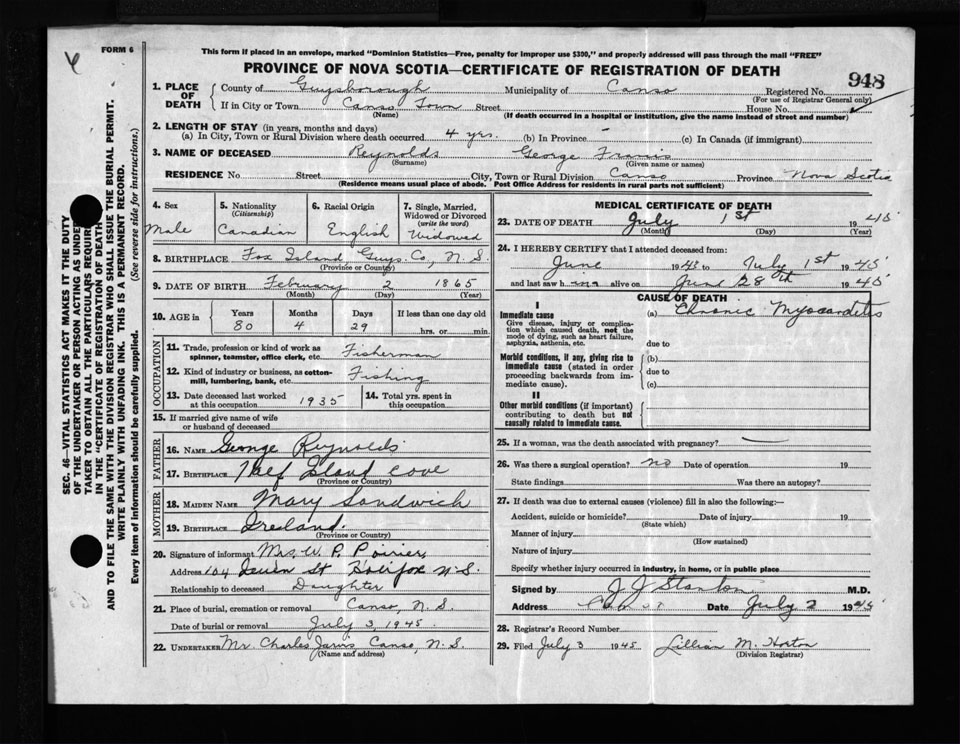 FORM 6
This form if placed in an envelope, marked "Dominion Statistics—Free, penalty for improper use $300," and properly addressed will pass through the mail "FREE"
PROVINCE OF NOVA SCOTIA—CERTIFICATE OF REGISTRATION OF DEATH
948
1. PLACE OF DEATH { County of Guysborough Municipality of Canso Registered No.
(For use of Registrar General only)
If in City or Town Canso Town Street House No.
(Name) (If death occurred in a hospital or institution, give the name instead of street and number)
2. LENGTH OF STAY (in years, months and days)
(a) In City, Town or Rural Division where death occurred 4 yrs. (b) In Province — (c) In Canada (if immigrant)
3. NAME OF DECEASED Reynolds George Franis
(Surname) (Given name or names)
RESIDENCE No. Street City, Town or Rural Division Canso Province Nova Scotia
(Residence means usual place of abode. Post Office Address for residents in rural parts not sufficient)
4. Sex Male
5. Nationality (Citizenship) Canadian
6. Racial Origin English
7. Single, Married, Widowed or Divorced (write the word) Widowed
8. BIRTHPLACE Fox Island Guys. Co, N. S.
(Province or Country)
9. DATE OF BIRTH February 2 1865
(Month) (Day) (Year)
10. AGE in Years 80 Months 4 Days 29 If less than one day old hrs. or min.
OCCUPATION
11. Trade, profession or kind of work as spinner, teamster, office clerk, etc. Fisherman
12. Kind of industry or business, as cotton-mill, lumbering, bank, etc. Fishing
13. Date deceased last worked at this occupation 1935 14. Total yrs. spent in this occupation
15. If married give name of wife or husband of deceased
FATHER
16. NAME George Reynolds
17. BIRTHPLACE Half Island Cove
(Province or Country)
MOTHER
18. MAIDEN NAME Mary Sandwich
19. BIRTHPLACE Ireland.
(Province or Country)
20. Signature of informant Mrs. W. P. Poirier,
Address 104 St Halifax N. S.
Relationship to deceased Daughter
21. Place of burial, cremation or removal Canso, N. S.
Date of burial or removal July 3, 1945.
22. UNDERTAKER Mr. Charles Jarvis Canso, N. S.
(Name and address)
MEDICAL CERTIFICATE OF DEATH
23. DATE OF DEATH July 1st 1945
(Month) (Day) (Year)
24. I HEREBY CERTIFY that I attended deceased from:
June 1945 to July 1st 1945
and last saw him alive on June 28th 1945
CAUSE OF DEATH
I
Immediate cause
Give disease, injury or complication which caused death, not the mode of dying, such as heart failure, asphyxia, asthenia, etc.
(a) Chronic Myocarditis
due to
Morbid conditions, if any, giving rise to immediate cause (stated in order proceeding backwards from immediate cause).
(b)
due to
(c)
II
Other morbid conditions (if important) contributing to death but not causally related to immediate cause.
25. If a woman, was the death associated with pregnancy? —
26. Was there a surgical operation? no Date of operation 19
State findings Was there an autopsy?
27. If death was due to external causes (violence) fill in also the following:—
Accident, suicide or homicide? Date of injury 19
(State which)
Manner of injury
(How sustained)
Nature of injury
Specify whether injury occurred in industry, in home, or in public place
Signed by J J Stanton M.D.
Address Date July 2 1945
28. Registrar's Record Number
29. Filed July 3 1945 Lillian M. Horton
(Division Registrar)
SEC. 46—VITAL STATISTICS ACT MAKES IT THE DUTY
OF THE UNDERTAKER OR PERSON ACTING AS UNDER
TAKER TO OBTAIN ALL THE PARTICULARS REQUIRE
IN THE "CERTIFICATE OF REGISTRATION OF DEATH
AND TO FILE THE SAME WITH THE DIVISION REGISTRAR WHO SHALL ISSUE THE BURIAL PERMIT.
WRITE PLAINLY WITH UNFADING INK. THIS IS A PERMANENT RECORD.
Every item of information should be carefully supplied. (See reverse side for instructions.)